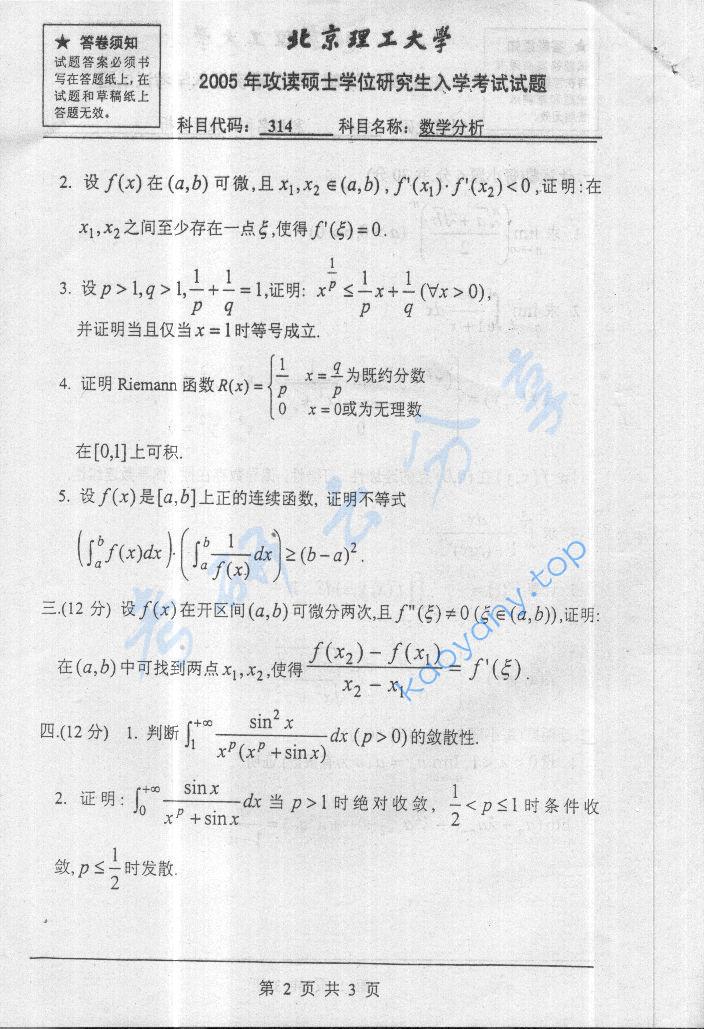 ★ 答卷须知
试题答案必须书
写在答题纸上,在
试题和草稿纸上
答题无效。
北京理工大学
2005 年攻读硕士学位研究生入学考试试题
科目代码: 314 科目名称: 数学分析
2. 设 f(x) 在 (a,b) 可微,且 x₁,x₂ ∈(a,b) , f'(x₁)· f'(x₂)<0 ,证明:在
x₁,x₂ 之间至少存在一点 ξ,使得 f'(ξ)=0.
3. 设 p>1,q>1, 1/p + 1/q =1,证明: x^(1/p) ≤ 1/p x + 1/q (∀x>0),
并证明当且仅当 x=1 时等号成立.
4. 证明 Riemann 函数 R(x)= { 1/p x = q/p 为既约分数
0 x=0或为无理数
在[0,1]上可积.
5. 设 f(x) 是 [a,b] 上正的连续函数, 证明不等式
(∫_a^b f(x)dx)·(∫_a^b 1/f(x) dx) ≥ (b−a)² .
三.(12 分) 设 f(x) 在开区间 (a,b) 可微分两次,且 f"(ξ)≠0 (ξ∈(a,b)),证明:
在 (a,b) 中可找到两点 x₁,x₂,使得 (f(x₂)−f(x₁))/(x₂−x₁) = f'(ξ) .
四.(12 分) 1. 判断 ∫_1^{+∞} sin²x/(x^p(x^p+sin x)) dx (p>0) 的敛散性.
2. 证明: ∫_0^{+∞} sin x/(x^p+sin x) dx 当 p>1 时绝对收敛, 1/2<p≤1 时条件收
敛, p≤1/2 时发散.
kaoyany.top
第 2 页 共 3 页